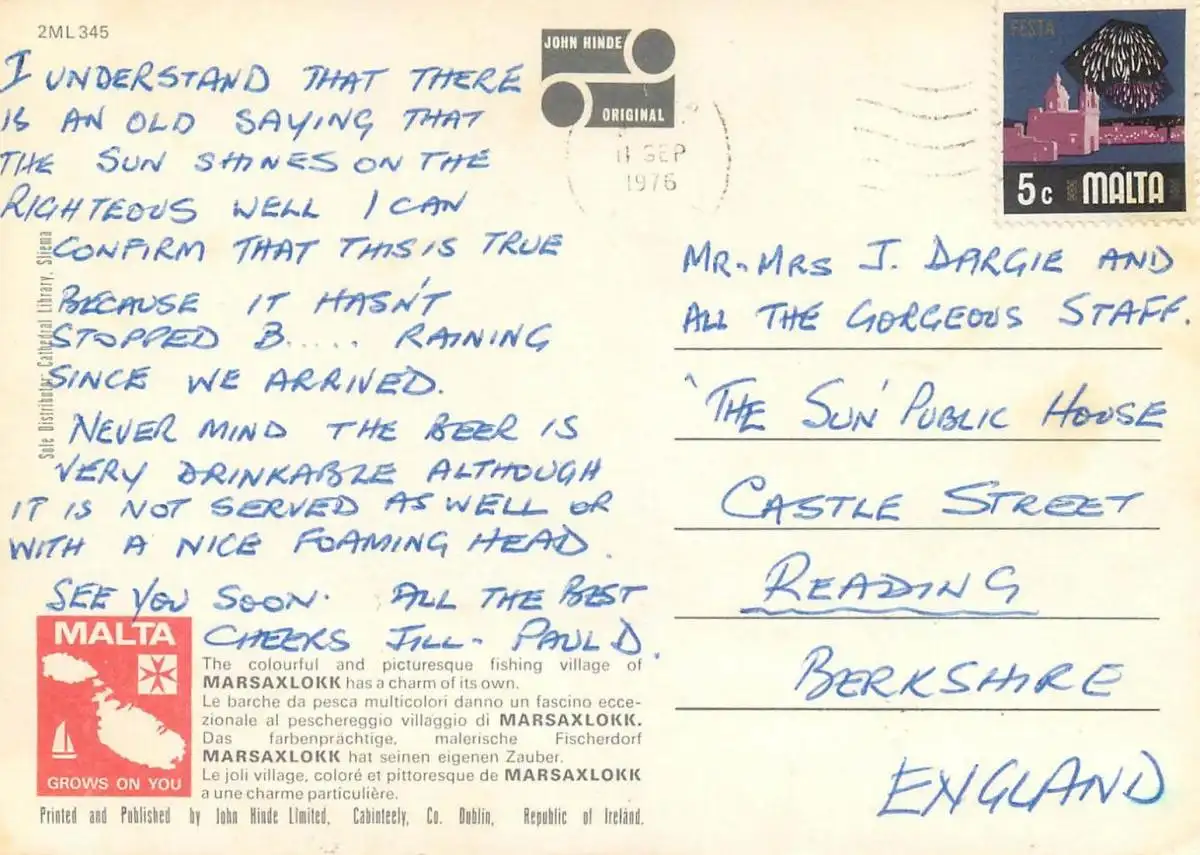 2ML 345
I UNDERSTAND THAT THERE
IS AN OLD SAYING THAT
THE SUN SHINES ON THE
RIGHTEOUS WELL I CAN
CONFIRM THAT THIS IS TRUE
BECAUSE IT HASN'T
STOPPED B..... RAINING
SINCE WE ARRIVED.
NEVER MIND THE BEER IS
VERY DRINKABLE ALTHOUGH
IT IS NOT SERVED AS WELL OR
WITH A NICE FOAMING HEAD.
SEE YOU SOON. ALL THE BEST
CHEERS JILL - PAUL D.
Sole Distributor: Cathedral Library, Sliema
MALTA
GROWS ON YOU
The colourful and picturesque fishing village of
MARSAXLOKK has a charm of its own.
Le barche da pesca multicolori danno un fascino ecce-
zionale al peschereggio villaggio di MARSAXLOKK.
Das farbenprächtige, malerische Fischerdorf
MARSAXLOKK hat seinen eigenen Zauber.
Le joli village, coloré et pittoresque de MARSAXLOKK
a une charme particulière.
Printed and Published by John Hinde Limited, Cabinteely, Co. Dublin, Republic of Ireland.
JOHN HINDE
ORIGINAL
11 SEP
1976
FESTA
5c MALTA
MR. MRS J. DARGIE AND
ALL THE GORGEOUS STAFF.
'THE SUN' PUBLIC HOUSE
CASTLE STREET
READING
BERKSHIRE
ENGLAND